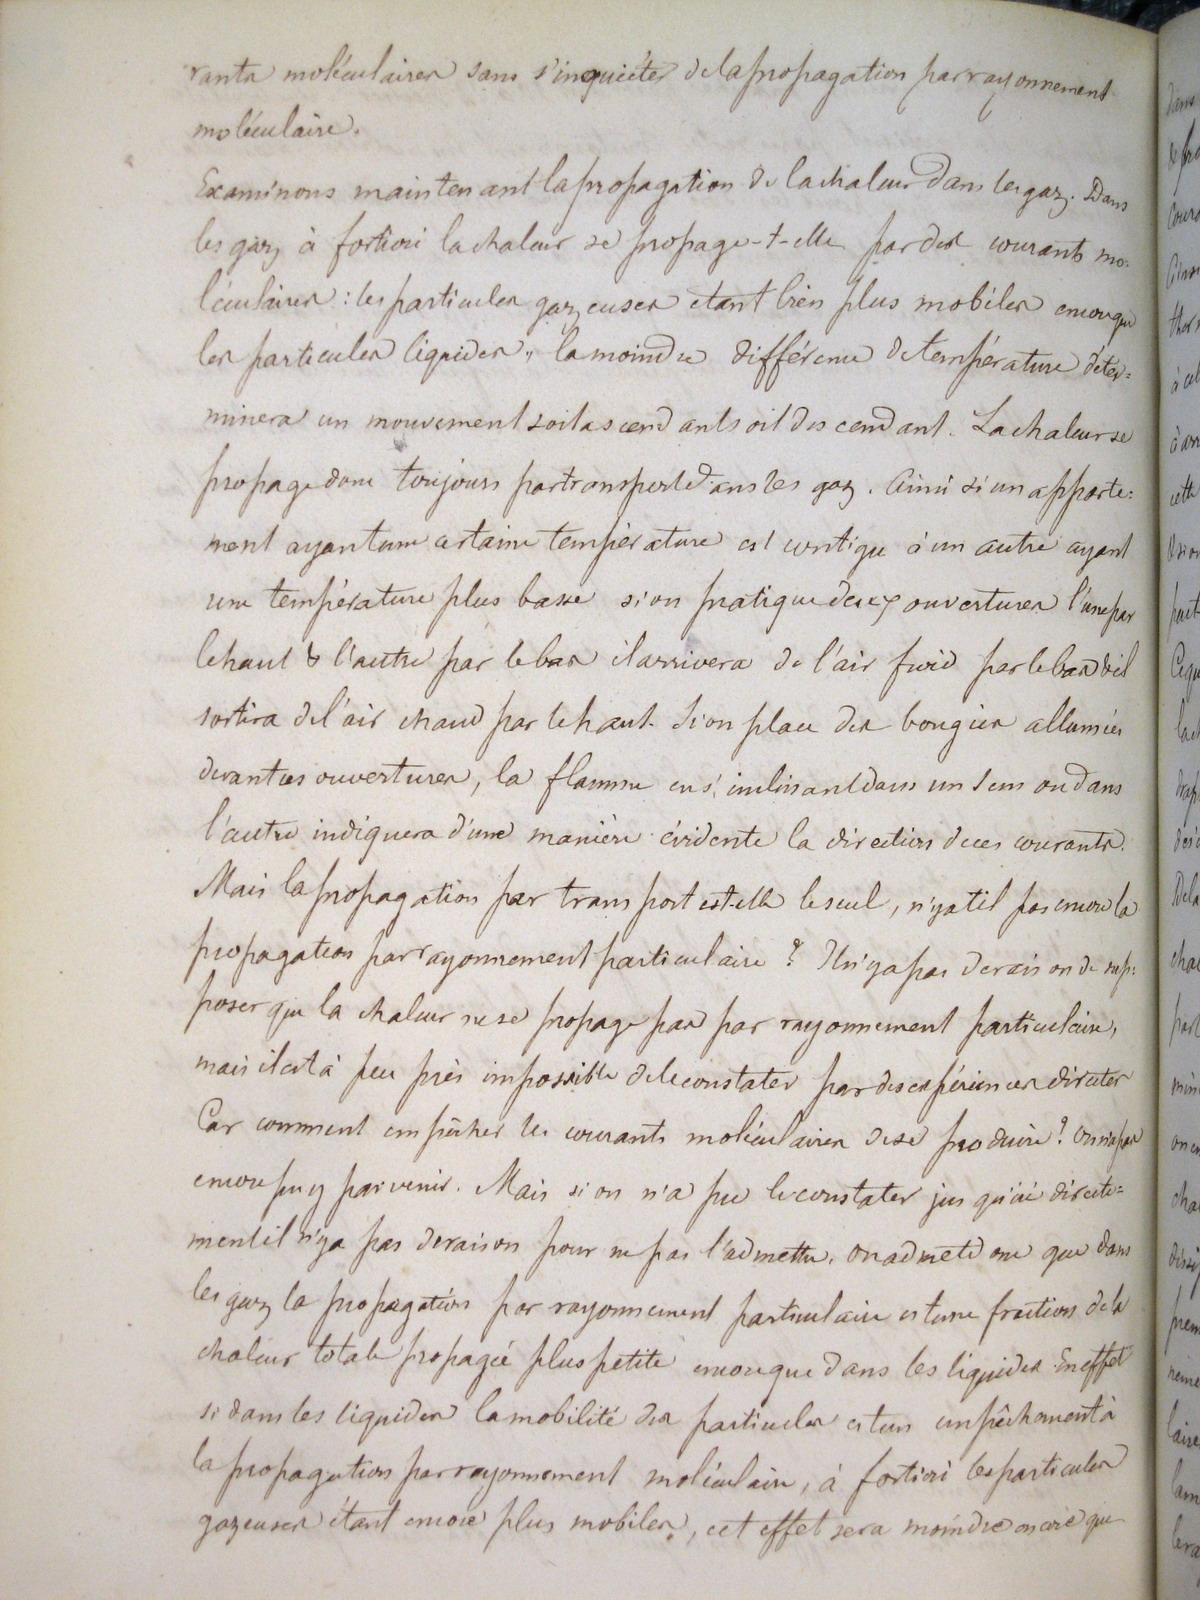 rants moléculaires sans s'inquiéter de la propagation par rayonnement
moléculaire.
Examinons maintenant la propagation de la chaleur dans les gaz. Dans
les gaz à fortiori la chaleur se propage-t-elle par des courants mo-
léculaires : les particules gazeuses etant bien plus mobiles encore que
les particules liquides, la moindre différence de température déter=
minera un mouvement soit ascendant soit descendant. La chaleur se
propage donc toujours par transport dans les gaz. Ainsi si un apparte=
ment ayant une certaine température est contigu à un autre ayant
une température plus basse si on pratique deux ouvertures l'une par
le haut & l'autre par le bas il arrivera de l'air froid par le bas & il
sortira de l'air chaud par le haut. Si on place des bougies allumées
devant ces ouvertures, la flamme en s'inclinant dans un sens ou dans
l'autre indiquera d'une manière évidente la direction de ces courants.
Mais la propagation par transport est-elle le seul, n'y a t il pas encore la
propagation par rayonnement particulaire ? Il n'y a pas de raison de sup=
poser que la chaleur ne se propage pas par rayonnement particulaire,
mais il est à peu près impossible de le constater par des expériences directes
Car comment empêcher les courants moléculaires de se produire ? On n'a pas
encore pu y parvenir. Mais si on n'a pu le constater jusqu'ici directe=
ment il n'y a pas de raison pour ne pas l'admettre. On admet donc que dans
les gaz la propagation par rayonnement particulaire est une fraction de la
chaleur totale propagée plus petite encore que dans les liquides. En effet
si dans les liquides la mobilité des particules est un empêchement à
la propagation par rayonnement moléculaire, à fortiori les particules
gazeuses étant encore plus mobiles, cet effet sera moindre encore que